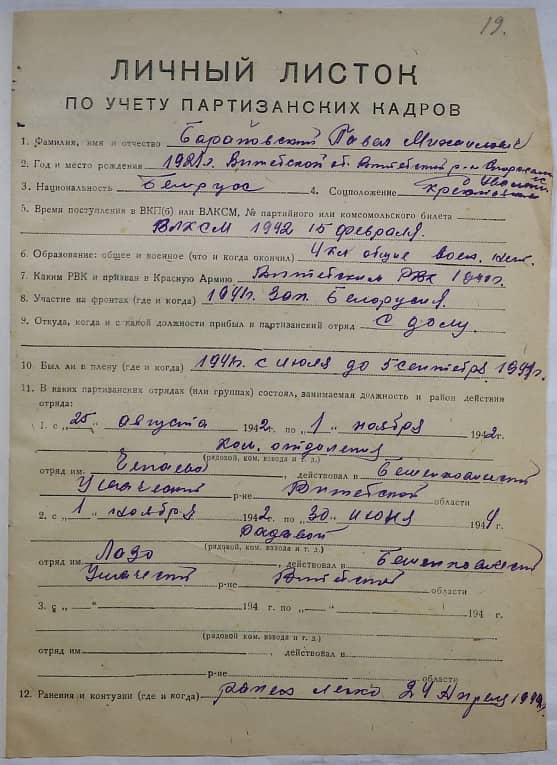 19.
ЛИЧНЫЙ ЛИСТОК
ПО УЧЕТУ ПАРТИЗАНСКИХ КАДРОВ
1. Фамилия, имя и отчество Барановский Павел Михайлович
2. Год и место рождения 1921г. Витебской об. Витебский р-н
3. Национальность Белорус 4. Соцположение Крестьянин
5. Время поступления в ВКП(б) или ВЛКСМ, № партийного или комсомольского билета
ВЛКСМ 1942 15 февраля.
6. Образование: общее и военное (что и когда окончил) 4 кл общие воен. нет.
7. Каким РВК и призван в Красную Армию Витебским РВК 1940г.
8. Участие на фронтах (где и когда) 1941г. Зап. Белорусия.
9. Откуда, когда и с какой должности прибыл в партизанский отряд с дому.
10. Был ли в плену (где и когда) 1941г. с июля до 5 сентября 1941г.
11. В каких партизанских отрядах (или группах) состоял, занимаемая должность и район действия
отряда:
1. с „25“ августа 1942г. по „1“ ноября 1942г.
ком. отделения
(рядовой, ком. взвода и т. д.)
отряд им. Чепаева, действовал в Бешенковический
Ушаческий р-не Витебской области
2. с „1“ ноября 1942 г. по „30“ июня 1944 г.
Радавой
(рядовой, ком. взвода и т. д.)
отряд им Лазо, действовал в
р-не Витебской области
3. с „ “ 194 г. по „ “ 194 г.
(рядовой, ком. взвода и т. д.)
отряд им. , действовал в
р-не области
12. Ранения и контузии (где и когда) ранен легко 24 Апреля